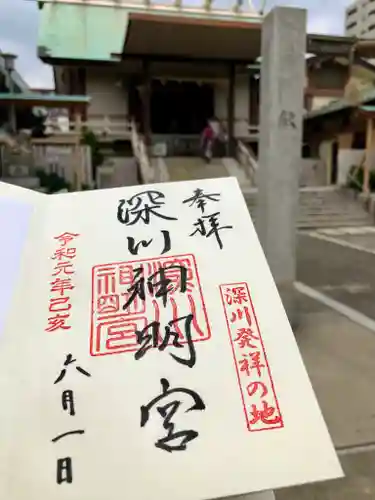 奉拝
深川神明宮
深川発祥の地
令和元年己亥
六月一日